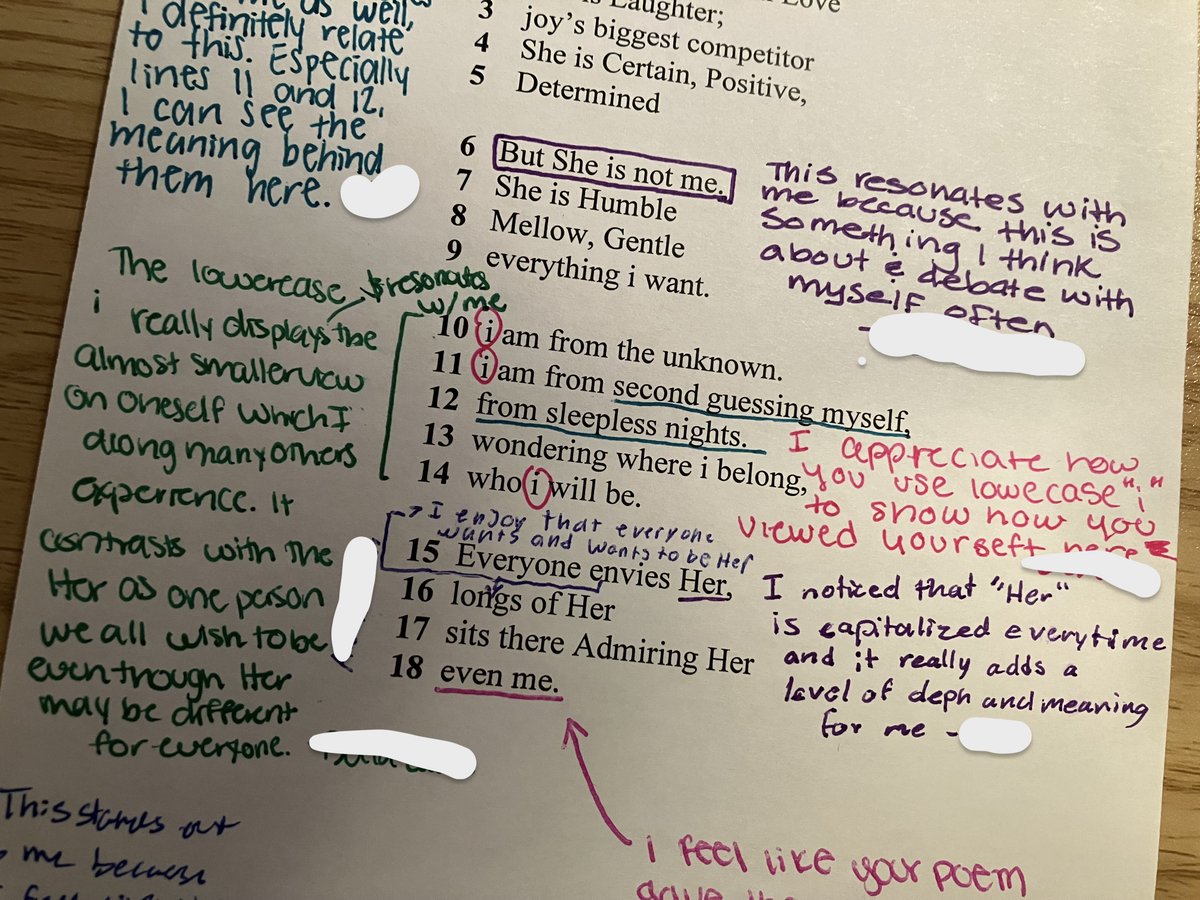 as well,
I definitely relate
to this. Especially
lines 11 and 12,
I can see the
meaning behind
them here.
Love
3 Laughter;
joy's biggest competitor
4 She is Certain, Positive,
5 Determined
6 But She is not me.
7 She is Humble
8 Mellow, Gentle
9 everything i want.
This resonates with
me because this is
something I think
about & debate with
myself often
The lowercase & resonates
w/me
i really displays the
almost smaller view
on oneself which I
along many others
experience. It
contrasts with the
Her as one person
we all wish to be
even though Her
may be different
for everyone.
10 i am from the unknown.
11 i am from second guessing myself,
12 from sleepless nights.
13 wondering where i belong,
14 who i will be.
I appreciate how
you use lowecase "i"
to show how you
viewed yourself here
I enjoy that everyone
wants and wants to be Her
15 Everyone envies Her,
16 longs of Her
17 sits there Admiring Her
18 even me.
I noticed that "Her"
is capitalized everytime
and it really adds a
level of deph and meaning
for me -
This stands out
me because
i feel like your poem
gave